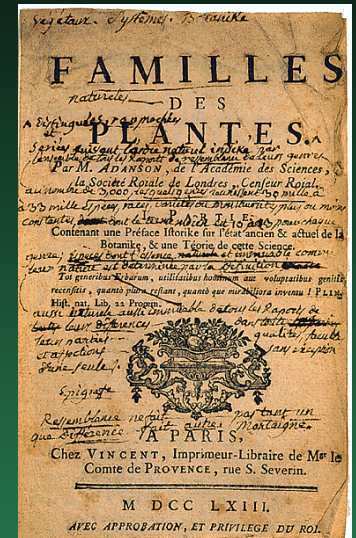 Végétaux. Systèmes. Botanike
FAMILLES
naturelles
DES
PLANTES.
Distinguées, raprochées
et
Séries suivant l'ordre naturel indiké par
l'ensemble de tous les Raports de ressemblance de leurs genres
Par M. ADANSON, de l'Académie des Sciences,
la Société Roïale de Londres, Censeur Roïal.
au nombre de 3,000 lesquels genres réunissent 30 mille à
33 mille Espèces, races, variétés ou monstruosités plus ou moins
I. PARTIE.
constantes, dont le nombre est de 10 à 13 pour chaque
Contenant une Préface Istorike sur l'état ancien & actuel de la
Botanike, & une Téorie de cette Science.
genre;
Tot generibus herbarum, utilitatibus hominum aut voluptatibus genitis,
recensitis, quantò plura restant, quantò que mirabiliora inventu ! PLIN.
Hist. nat. Lib. 22 Proœm.
aussi naturele aussi immuable de tous les Raports de
leurs différences dans toutes
leurs parties qualités, facultés
et afections sans exception
d'une seule.
Epigrafe
Ressemblance ne fait pas tant un
que Différence fait autre. Montaigne.
A PARIS,
Chez VINCENT, Imprimeur-Libraire de Mgr le
Comte de PROVENCE, rue S. Severin.
M DCC LXIII.
AVEC APPROBATION, ET PRIVILEGE DU ROI.